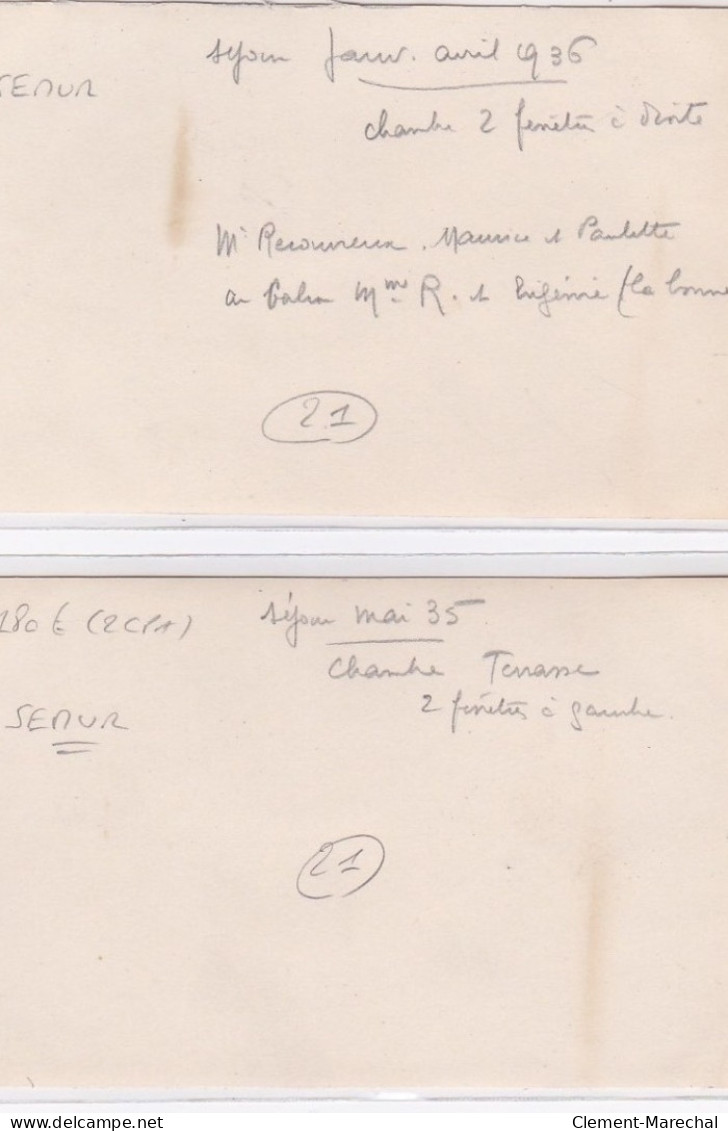 séjour Janv. avril 1936
SEMUR
chambre 2 fenêtres à droite
Mr Recouvreur. Maurice et Paulette
au balcon Mme R. et Eugénie (la bonne
21
280 € (2CPA)
séjour mai 35
Chambre Terrasse
2 fenêtres à gauche.
SEMUR
21
delcampe.net
Clement-Marechal